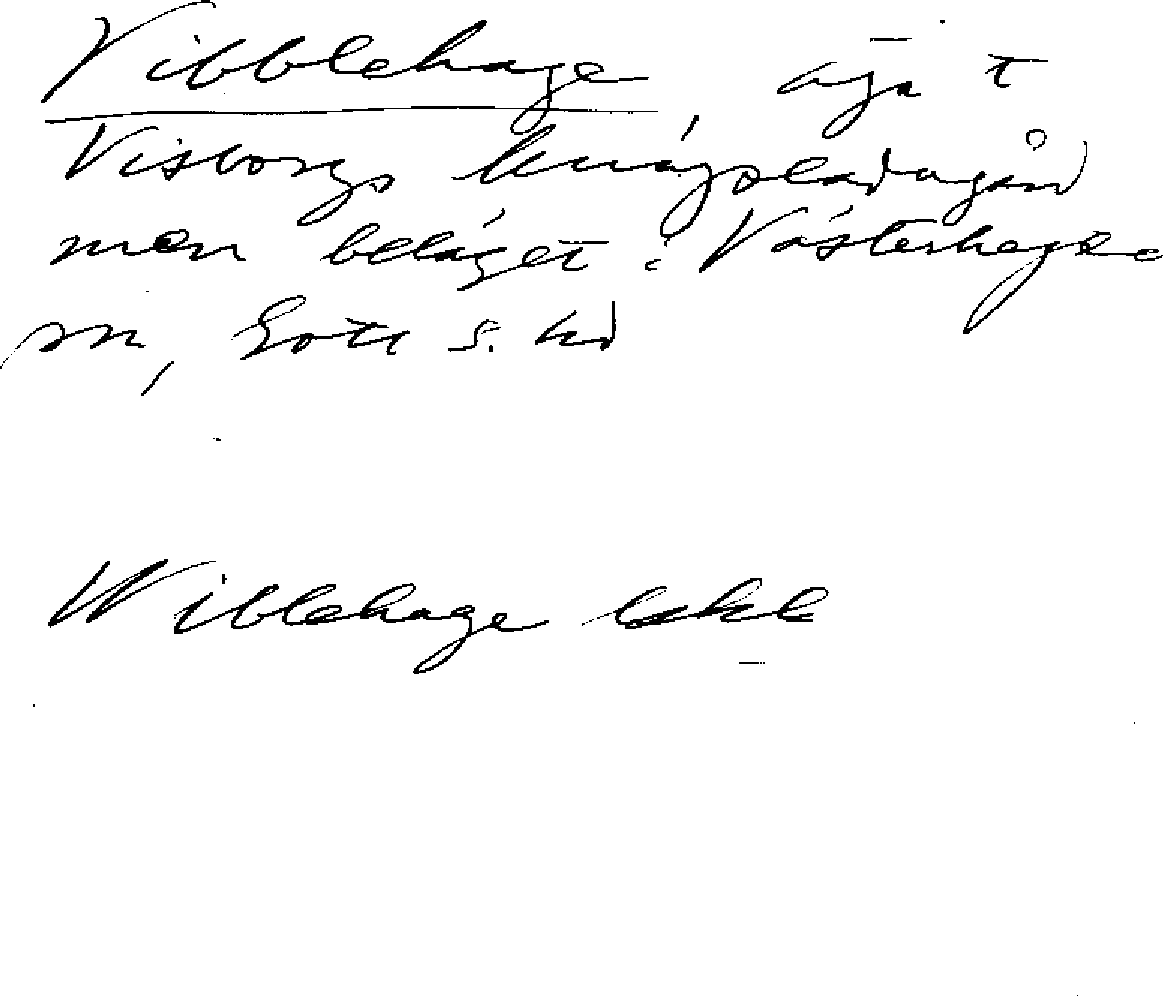 Vibblehage, äga t
Visborgs kungsladugård
men beläget i Västerhejde
sn, Gotl s. hd
Wiblehage